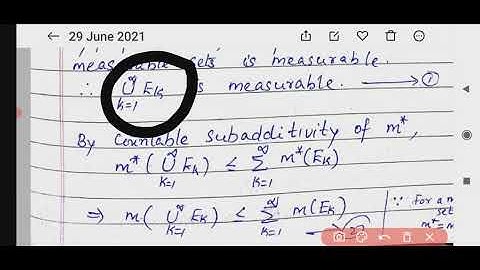 29 June 2021
measurable sets is measurable.
∴ ∞∪k=1 Ek is measurable. → ①
By Countable subadditivity of m*,
m* ( ∞∪k=1 Ek ) ≤ ∞Σk=1 m*(Ek)
⇒ m ( ∞∪k=1 Ek ) ≤ ∞Σk=1 m(Ek)
∵ for a m
set
m* = m